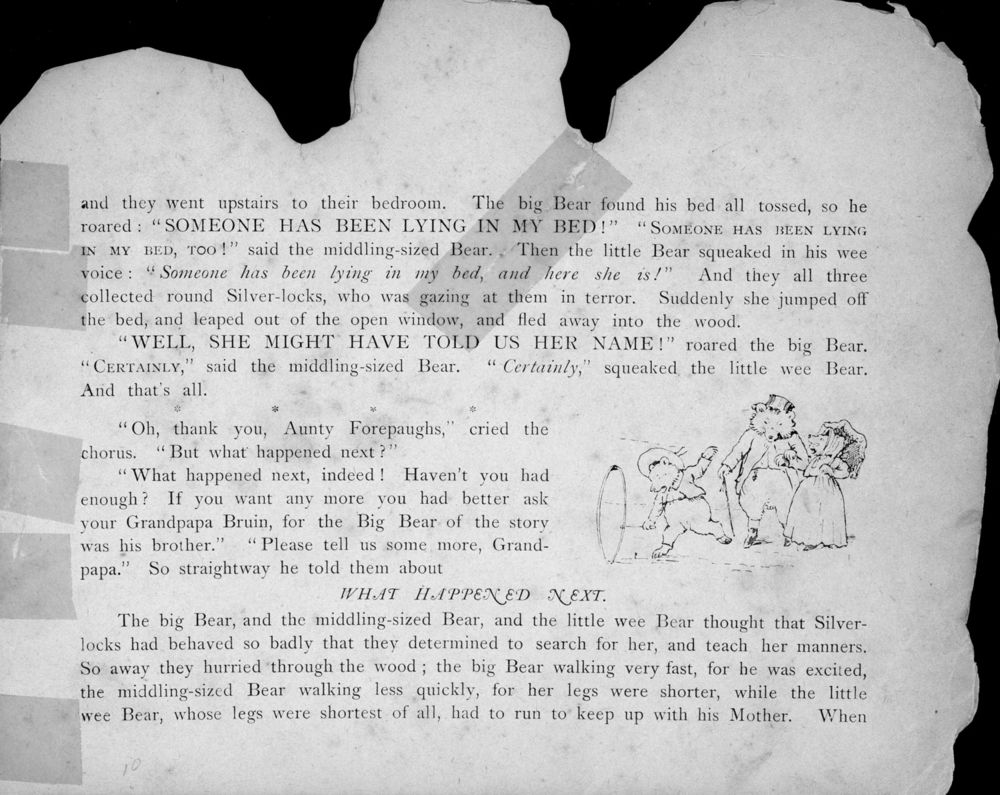 and they went upstairs to their bedroom. The big Bear found his bed all tossed, so he
roared : "SOMEONE HAS BEEN LYING IN MY BED!" "SOMEONE HAS BEEN LYING
IN MY BED, TOO!" said the middling-sized Bear. Then the little Bear squeaked in his wee
voice : "Someone has been lying in my bed, and here she is!" And they all three
collected round Silver-locks, who was gazing at them in terror. Suddenly she jumped off
the bed, and leaped out of the open window, and fled away into the wood.
"WELL, SHE MIGHT HAVE TOLD US HER NAME!" roared the big Bear.
"CERTAINLY," said the middling-sized Bear. "Certainly," squeaked the little wee Bear.
And that's all.
* * * *
"Oh, thank you, Aunty Forepaughs," cried the
chorus. "But what happened next?"
"What happened next, indeed! Haven't you had
enough? If you want any more you had better ask
your Grandpapa Bruin, for the Big Bear of the story
was his brother." "Please tell us some more, Grand-
papa." So straightway he told them about
WHAT HAPPENED NEXT.
The big Bear, and the middling-sized Bear, and the little wee Bear thought that Silver-
locks had behaved so badly that they determined to search for her, and teach her manners.
So away they hurried through the wood ; the big Bear walking very fast, for he was excited,
the middling-sized Bear walking less quickly, for her legs were shorter, while the little
wee Bear, whose legs were shortest of all, had to run to keep up with his Mother. When
10